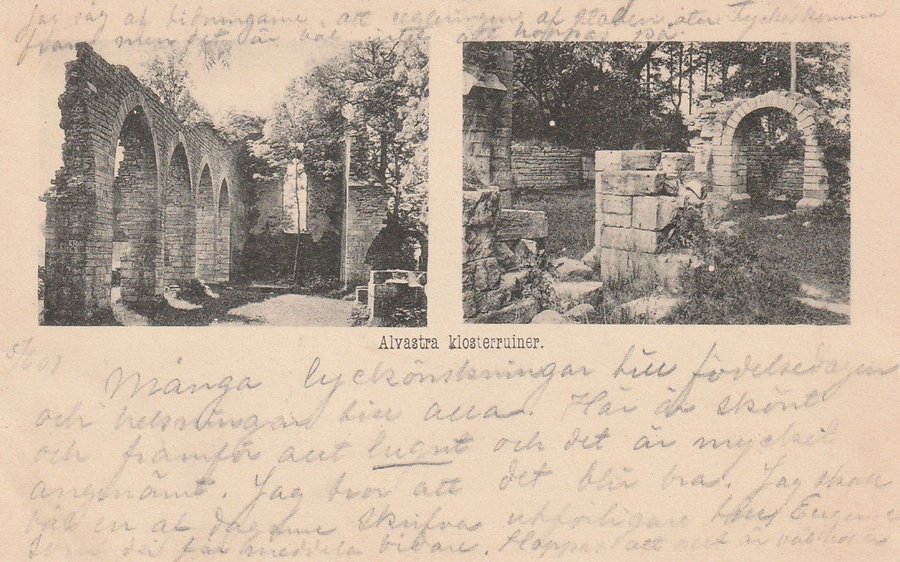 Jag såg af tidningarne, att regleringen af staden åter
fram men det är väl intet att hoppas på.
Alvastra klosterruiner.
Många lyckönskningar till födelsedagen
och helsningar till alla. Här är skönt
och framför allt lugnt och det är mycket
angenämt. Jag tror att det blir bra. Jag skall
väl en af dagarne skrifva utförligare till Eugene
som du får meddela vidare. Hoppas att allt är väl hos er